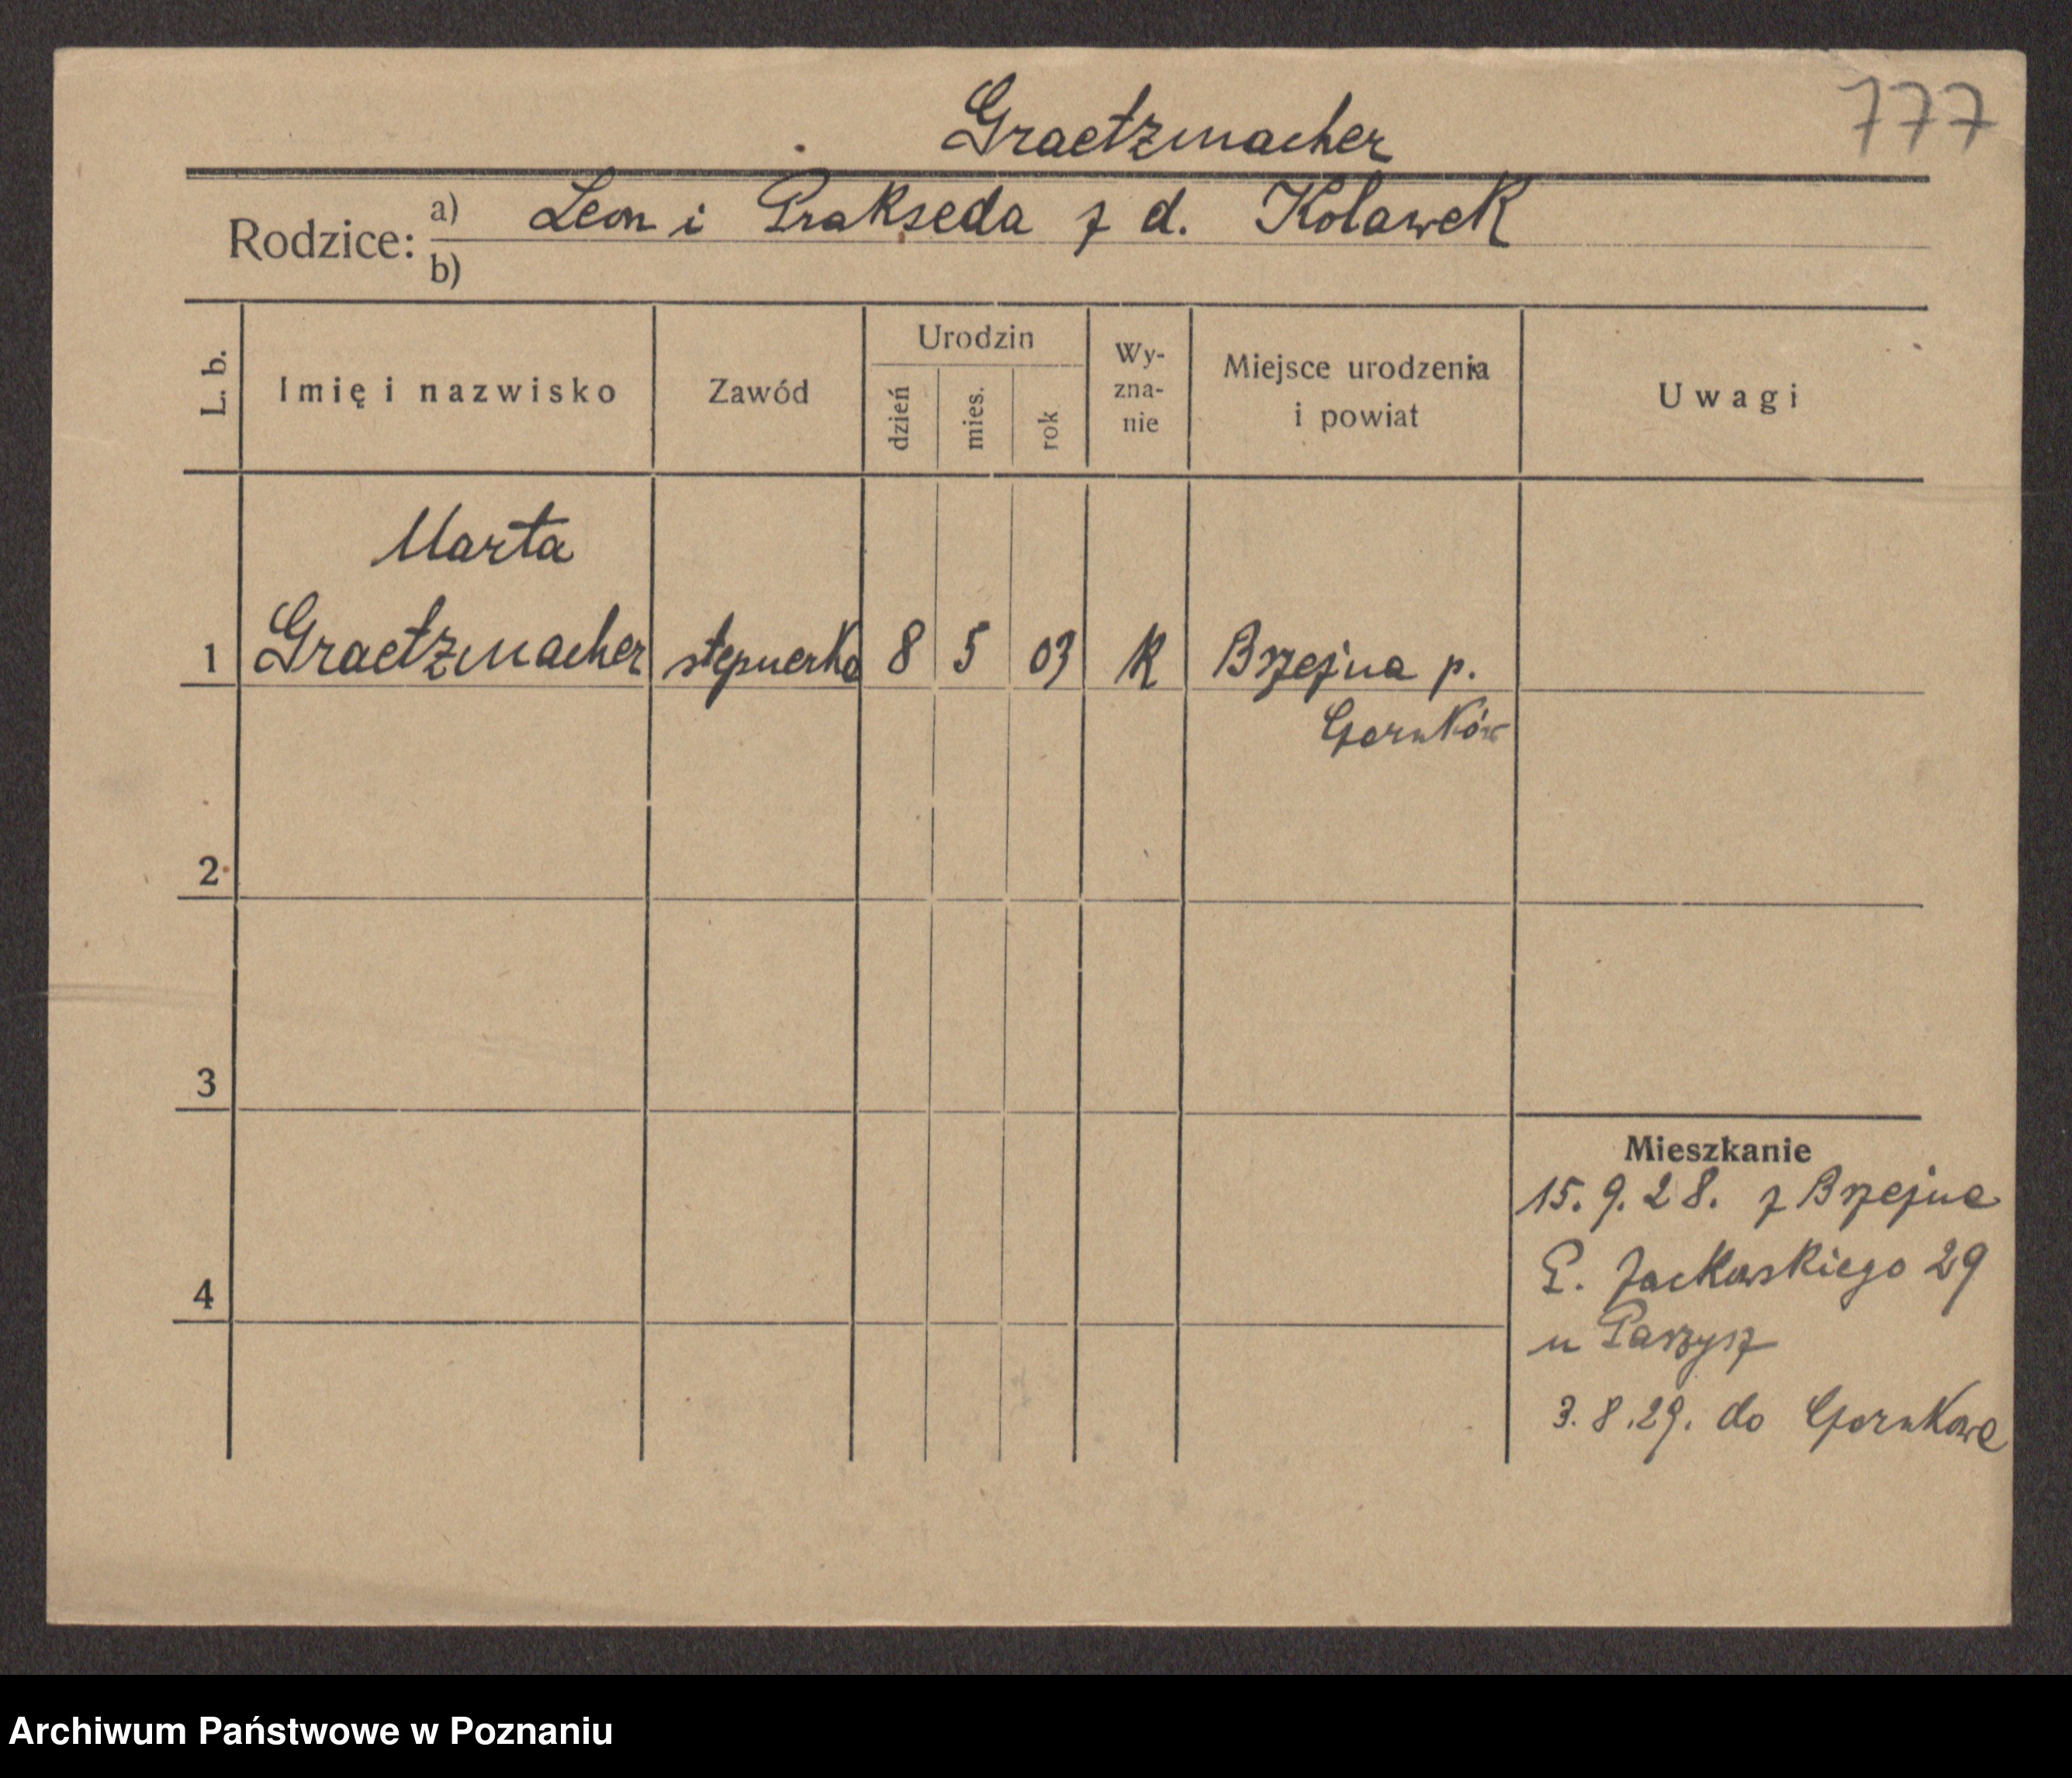 777
Graetzmacher
Rodzice: a) Leon i Prakseda z d. Kolawek
b)
L. b. Imię i nazwisko Zawód Urodzin dzień mies. rok Wy-zna-nie Miejsce urodzenia i powiat Uwagi
Marta
1 Graetzmacher stepnerka 8 5 03 K Brzezna p.
Czarnków
2
3
Mieszkanie
15. 9. 28. z Brzezna
P. Jackowskiego 29
4
u Parzysz
3. 8. 29. do Czarnkowa
Archiwum Państwowe w Poznaniu